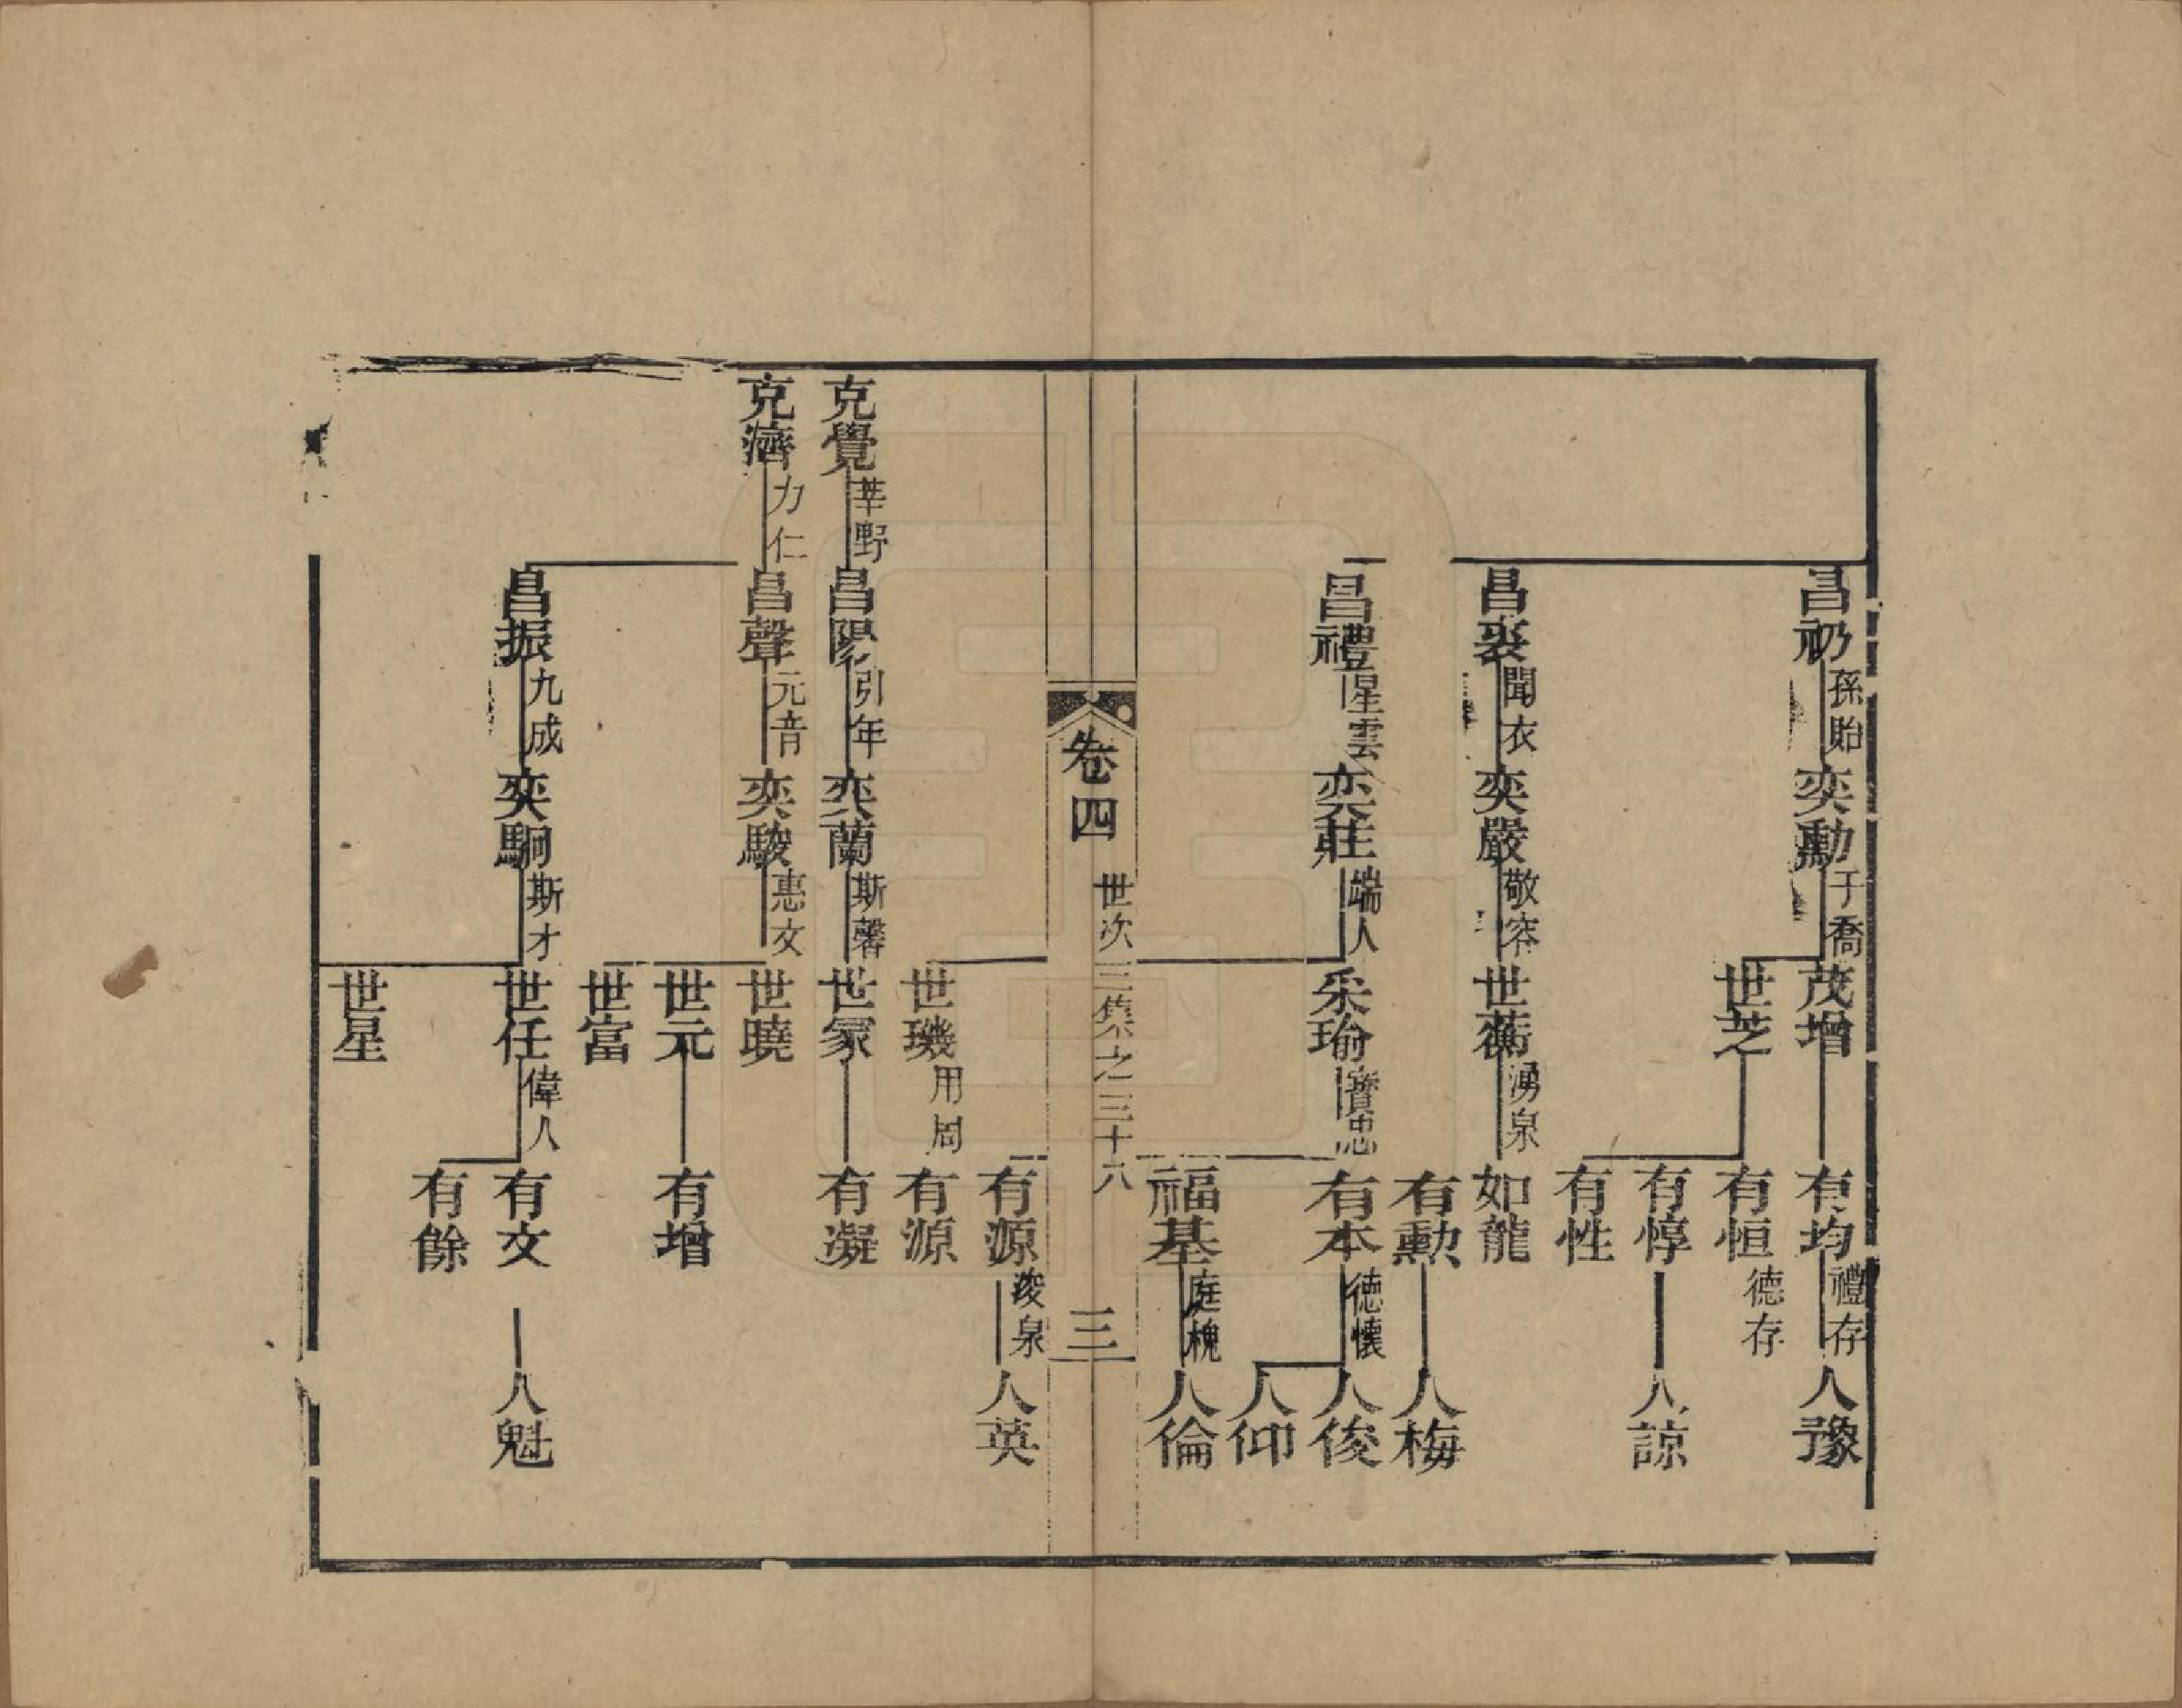 昌礽 孫貽 奕勳 于喬 茂增 有均 禮存 人豫
世芝 有恒 德存
有惇 人諒
有性
昌裘 聞衣 奕嚴 敬 世蕉 湧泉 如龍
有勲 人梅
昌禮 星雲 奕莊 端人 采瑜 寶忠 有本 德懷 人俊
人仰
福基 庭槐 人倫
卷四 世次三集之三十八 三
有源 浚泉 人英
世璣 用周 有源
克覺 莘野 昌陽 引年 奕蘭 斯馨 世冡 有凝
克濟 力仁 昌聲 元音 奕駿 惠文 世曉
世元 有增
世富
昌振 九成 奕駉 斯才 世任 偉人 有文 人魁
有餘
世星